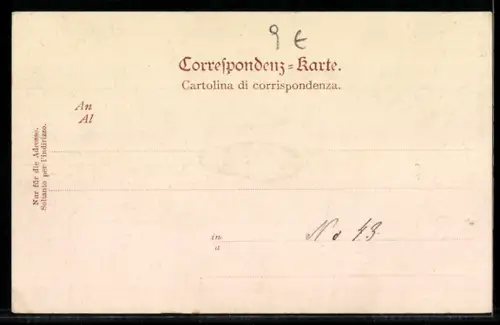 9 €
Correſpondenz=Karte.
Cartolina di corrispondenza.
An
Al
Nur für die Adresse.
Soltanto per l'indirizzo.
in
a
No 43